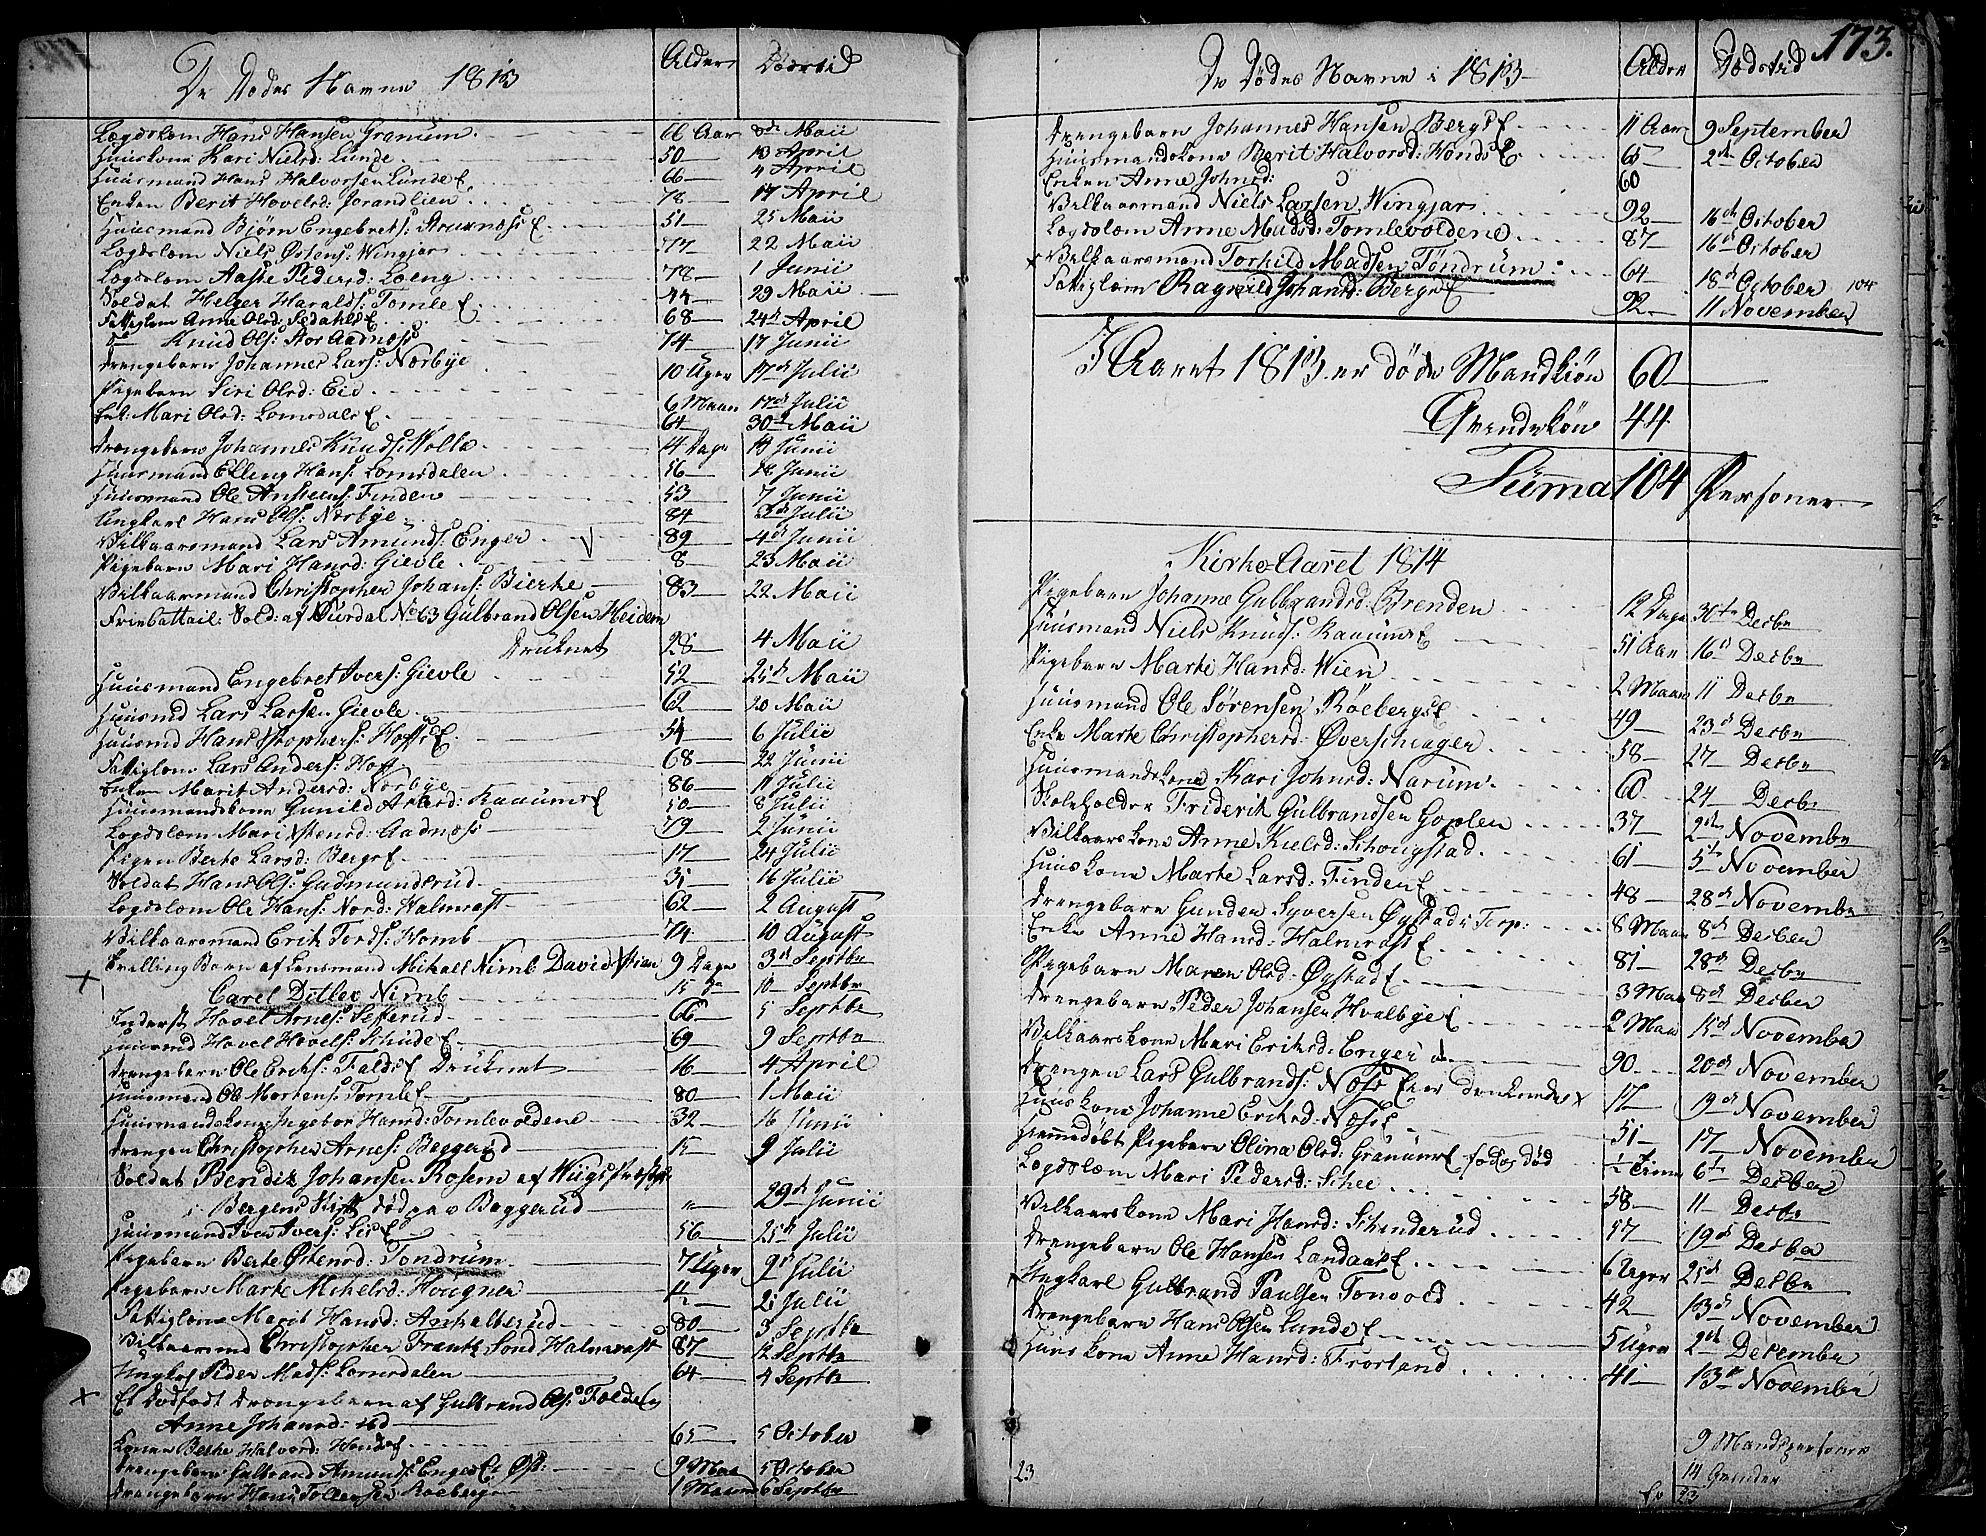 De Dødes Navne 1813
Alder
Dødstid
Logdslem Hans Hansen Granum 66 Aar 8de Maii
Huuskone Kari Nielsd: Lunde 50 13 April
Huusmand Hans Halvorsen Lunde E 66 4 April
Enken Berit Hovelsd: Jorandlien 78 17 April
Huusmand Bjørn Engebrets: E 51 25 Maii
Logdslem Niels Østens: Wingjar 77 22 Maii
Logdslem Aaste Pedersd: Loeng 78 1 Junii
Soldat Helger Haralds: Tomle E 44 29 Maii
Fattiglem Anne Olsd: E 68 24d April
Knud Ols: Stor Aadnøss 74 17 Junii
Drengebarn Johannes Lars: Norbye 10 Uger 17d Julii
Pigebarn Siri Olsd: Eid 6 Maan 17de Julii
Enk: Mari Olsd: Lomsdals E 64 30d Maii
Drengebarn Johannes Knuds: Holla 4 Dage 18 Junii
Huusmand Elling Hans: Lomsdalen 56 28 Junii
Huusmand Ole Anstens: Finden 53 7 Junii
Ungkarl Hans Ols: Norbye 84 Julii
Vilkaarsmand Lars Amunds: Enger 89 4d Junii
Pigebarn Mari Hansd: Gievle 8 23 Maii
Vilkaarsmand Christopher Johans: Bierke 83 22 Maii
Friebattail: Sold: af Ourdal No 63 Gulbrand Olsen Heiden
Druknet 28 4 Maii
Huusmand Engebret Ivers: Gievle 52 25d Maii
Huusmd Lars Larsen Gievle 62 20 Maii
Huusmd Hans Stophers: Hoffs E 54 6 Julii
Fattiglem Lars Anders: Hoff 68 22 Junii
Enken Marit Andersd: Norbye 86 11 Julii
Huusmandskone Gunild Arnesd: Kaaums E 50 8 Julii
Logdslem Mari Østensd: Aadnøss 79 2 Junii
Pigen Berte Larsd: Bergs E 17 24 Julii
Soldat Hans Ols: Gudmundsrud 31 16 Julii
Logdslem Ole Hans: Nord: Halmrast 62 2 August
Vilkaarsmand Erik Tords: Homb 74 10 August
× Tvilling Børn af Lensmand Mikael Nimb David 9 Dage 3d Septbr
Carel Ditlev Nimb 15 Do 10 Septbr
Inderst Hovel Arnes: Sefferud 66 5 Septbr
Huusmd Hovel Hovels: Schude E 69 9 Septbr
Drengebarn Ole Eriks: Falds E Druknet 16 4 April
Huusmand Ole Mortens: Tomle E 80 1 Maii
Huusmandskone Ingebor Hansd: Tomlevoldene 32 16 Junii
Drengen Christopher Arnes: Baggerud 15 9 Julii
Soldat Bendix Johansen Rosem af
Bergens Stift død paa Baggerud " 29d Junii
Huusmand Iver Ivers: Lie E 56 25d Julii
Pigebarn Berte Østensd: Tondrum 7 Uger 9d Julii
Pigebarn Marte Mikelsd: Hougner 2 Julii
Fattiglem Marit Hansd: Amhalterud 80 3 Septbr
Vilkaarsmd Christopher Frantz Sønd: Halmrast 87 12 Septbr
Ungk: Peder Mads: Lomsdalen 64 4 Septbr
× Et dødfødt Drengebarn af Gulbrand Ols: Folds E og
Anne Johansd: ibd
Konen Berte Halvord: Honds E 65 5 October
Drengebarn Gulbrand Amunds: Enger E Øst: 9 Maa 5 October
Drengebarn Hans Tollefsen Roeberg 1 Maaned 6 Septbr
De Dødes Navne i 1813
Alder
Dødstid
173.
Drengebarn Johannes Hansen Bergs E 11 Aar 9 September
Huusmandskone Berit Halvorsd: Honds E 65 2de October
Enken Anne Johnsd: 60
Vilkaarsmand Niels Larsen Wingjar 92 16de October
Logdslem Anne Madsd: Tomlevoldene 87 16d October
× Vilkaarsmand Torkild Madsen Tøndrum 64 18d October 104
Fattiglem Ragnild Johansd: Bergs E 92 11 November
I Aaret 1813 er døde Mandkiøn 60
Qvindekiøn 44
Summa 104 Personer
Kirke-Aaret 1814
Pigebarn Johanne Gulbrandsd: Brenden 12 Dage 30te Decbr
Huusmand Niels Knuds: Kaaums E 51 Aar 16d Decbr
Pigebarn Marte Hansd: Wien 2 Maan 11 Decbr
Huusmand Ole Sørensen Röebergs E 49 23d Decbr
Enke Marte Christophersd: Øverschiager 58 27 Decbr
Huusmandskone Kari Johnsd: Narum 60 24 Decbr
Skoleholder Friderik Gulbrandsen Goplen 37 2den November
Vilkaarskone Anne Kielsd: Schougstad 61 5te November
Huuskone Marte Larsd: Finden E 48 28d November
Drengebarn Gunder Syversen Øystads Terp: 8 Maan 8d Decber
Enke Anne Hansd: Halmrast E 81 28d Decbr
Pigebarn Maren Olsd: Øystad E 3 Maan 8d Decber
Drengebarn Peder Johansen Hvalbye E 2 Maan 15d November
Vilkaarskone Mari Eriksd: Enger 90 20d November
Drengen Lars Gulbrands: Noss Eier 17 19d November
Huuskone Johanne Eriksd: Noss E 51 17 November
Hjemmedøbt Pigebarn Olina Olsd: Granums E født og død ½ Time 6te Decber
Logdslem Mari Pedersd: Schee 58 11 Decbr
Vilkaarskone Mari Hansd: Schinderud 57 19d Decber
Drengebarn Ole Hansen Landaas E 6 Uger 25d Decbr
Ungkarl Gulbrand Paulsen Tonvold 42 13d November
Drengebarn Hans Olsen Lunde E 5 Uger 2den December
Huuskone Anne Hansd: Frorland 41 13de November
9 Mandspersoner
14 Qvinder
23
23